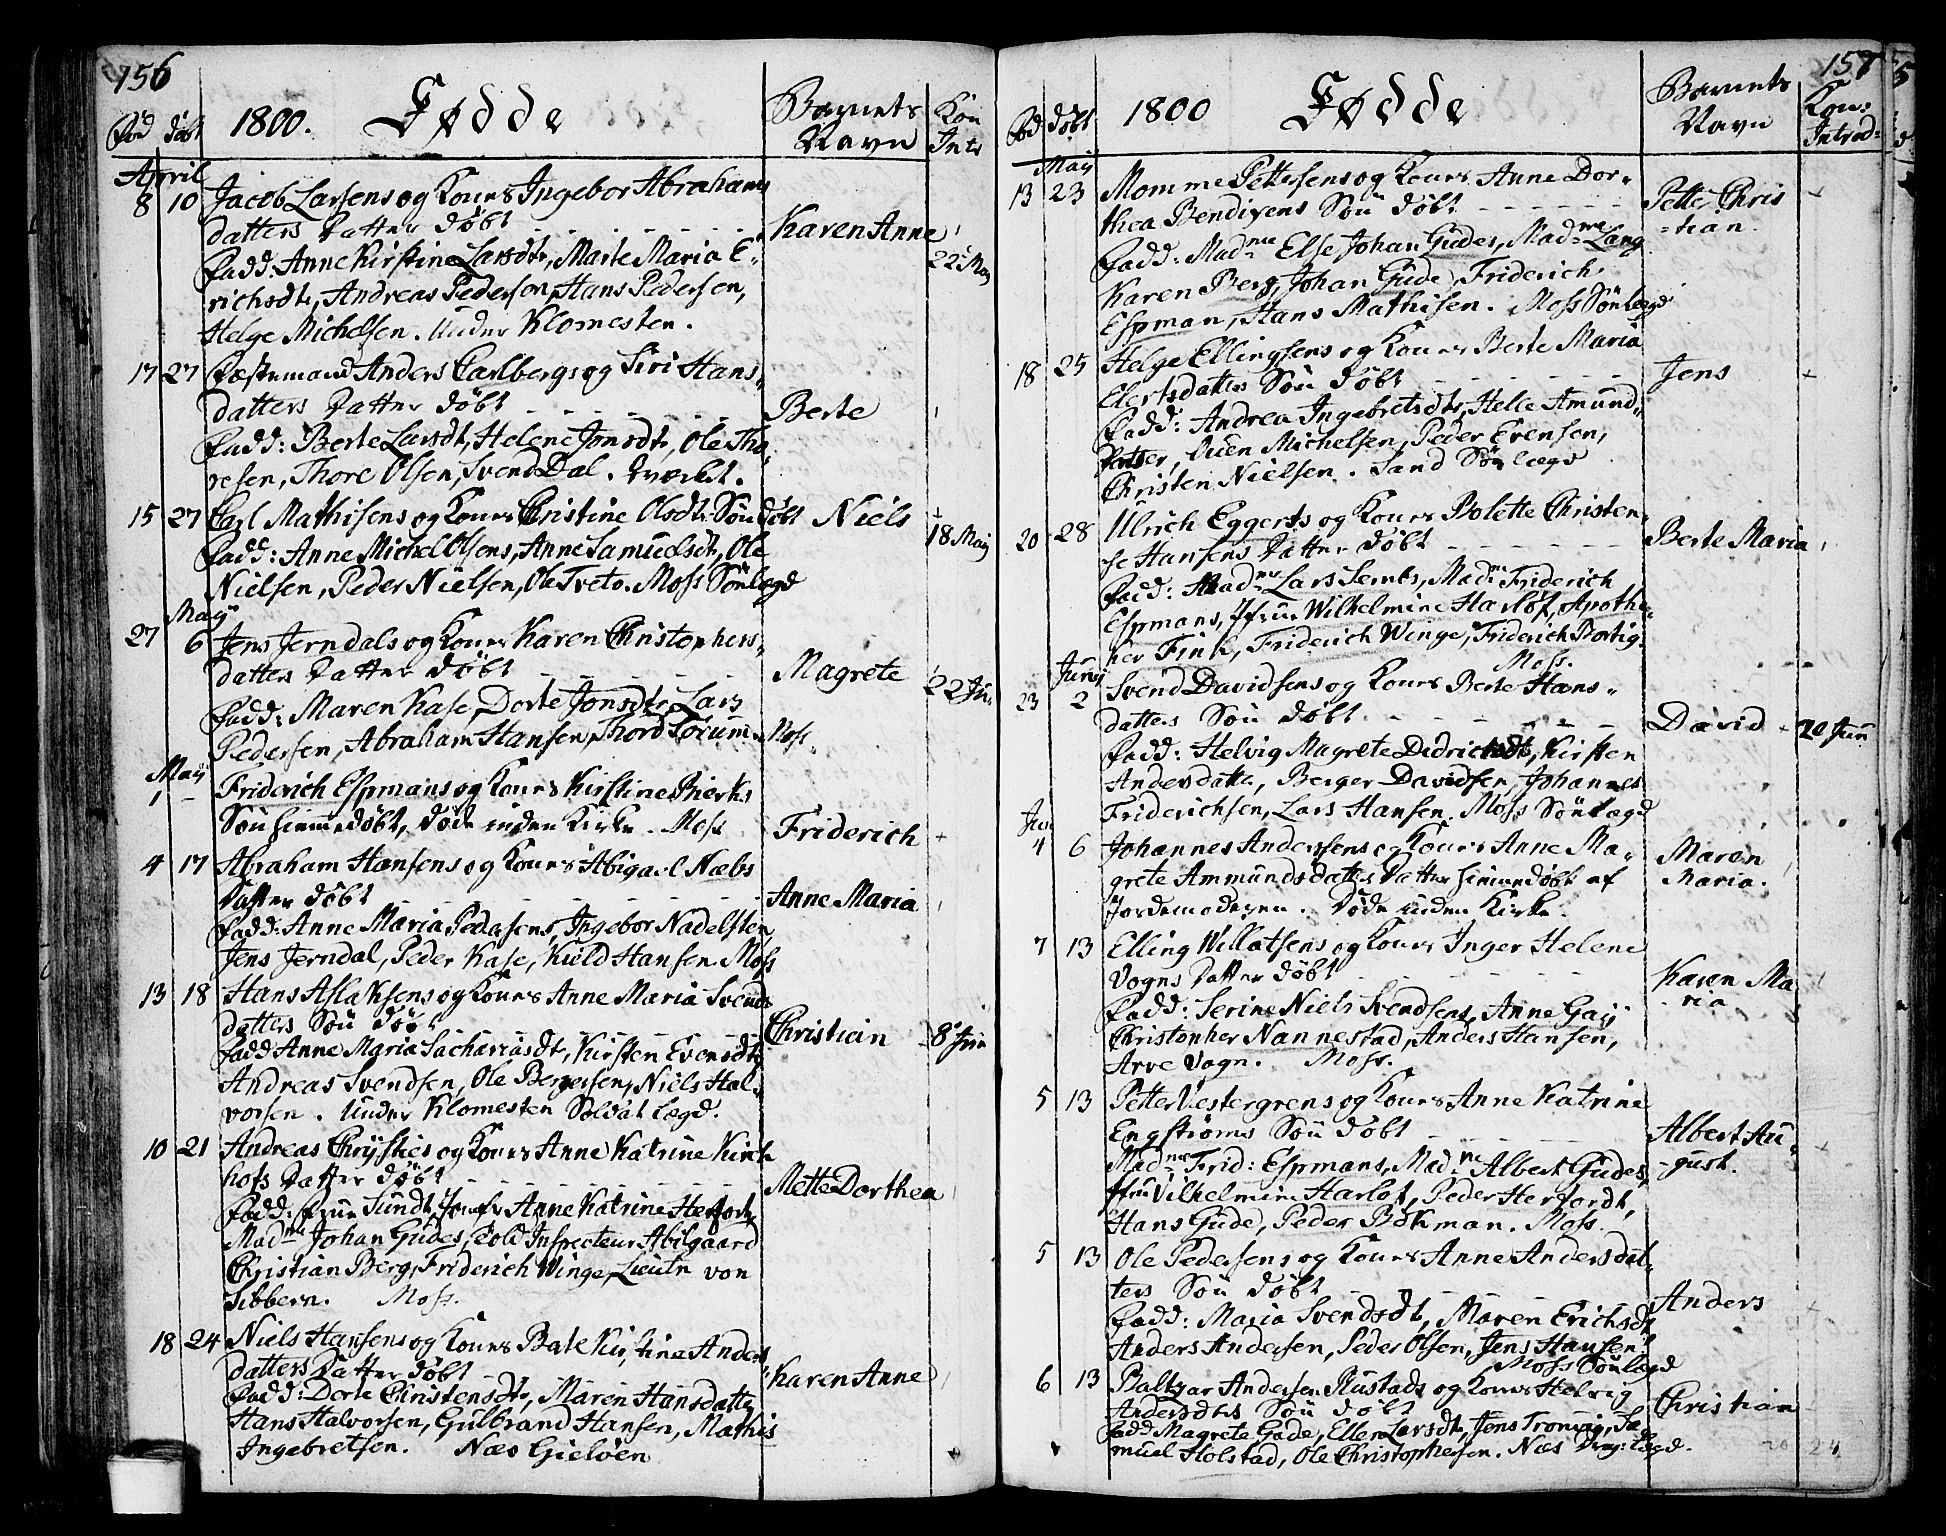 156
Fød døbt 1800. Fødde Barnets Navn Kon Intr
April
8 10 Jacob Larsens og Kones Ingebor Abrahams
datters Datter døbt Karen Anne
Fadd: Anne Kirstine Larsdtr, Marte Maria E- 22 May
richsdtr, Andreas Pedersen, Hans Pedersen,
Helge Michelsen. Under Klomesten.
17 27 Fæstemand Anders Carlbergs og Siri Hans-
datters Datter døbt Berte
Fadd: Berte Larsdt, Helene Jonsdtr, Ole Tho-
resen, Thore Olsen, Svend Dal. Værket.
15 27 Carl Mathisens og Kones Christine Olsdtr Søn døbt Niels
Fadd: Anne Michel Olsens, Anne Samuelsdt, Ole 18 May
Nielsen, Peder Nielsen, Ole Tveto. Moss Sønlægd
May
27 6 Jens Jerndals og Kones Karen Christophers-
datters Datter døbt Magrete
Fadd: Maren Kase, Dorte Jonsdtr, Lars 22 Ju
Pedersen, Abraham Hansen, Thord Sørum. Moss.
May
1 – Friderich Espmans og Kones Kirstine Bierks
Søn hiemmedøbt, døde inden Kirke. Moss Friderich
4 17 Abraham Hansens og Kones Abigael Næbs
Datter døbt Anne Maria
Fadd: Anne Maria Pedersens, Ingebor Nadelsten
Jens Jerndal, Peder Kase, Kield Hansen. Moss
13 18 Hans Aslaksens og Kones Anne Maria Svends
datters Søn døbt Christian
Fadd: Anne Maria Sachariasdt, Kirsten Evensdt, 8 Jun
Andreas Svendsen, Ole Bergersen, Niels Hal-
vorsen. Under Klomesten Soldat Lægd.
10 21 Andreas Chrysties og Kones Anne Katrine Kirk
hofs Datter døbt Mette Dorthea
Fadd: Frue Sundt, Jomfr Anne Katrine Herfort,
Madme Johan Gudes, Told Inspecteur Abilgaard
Christian Berg, Friderich Winge, Lieutn von
Sibbern. Moss.
18 24 Niels Hansens og Kones Berte Kirstine Anders
datters Datter døbt Karen Anne
Fadd: Dorte Christensdtr, Maren Hansdatter
Hans Halvorsen, Gulbrand Hansen, Mathis
Ingebretsen. Næs Gieløen
157
Fød døbt 1800 Fødde Barnets Navn Kon: Introd:
May
13 23 Momme Pettersens og Kones Anne Dor-
thea Bendixens Søn døbt Petter Chris
Fadd: Madme Else Johan Gudes, Madme Lang -tian.
Karen Berg, Johan Gude, Friderich
Espman, Hans Mathisen. Moss Sønlægd
18 25 Helge Ellingsens og Kones Berte Maria
Elertsdatters Søn døbt Jens
Fadd: Andrea Ingebretsdtr, Helle Amund-
datter, Ouen Michelsen, Peder Evensen,
Christen Nielsen. Sand Sønlægd
20 28 Ulrich Eggerts og Kones Bolette Christen-
se Hansens Datter døbt Berte Maria
Fadd: Madme Lars Sembs, Madme Friderich
Espmans, Jfrue Wilhelmine Harlof, Apothe-
ker Fink, Friderich Winge, Friderich Rostig.
Moss.
Juny
23 2 Svend Davidsens og Kones Berte Hans-
datters Søn døbt David 20 Jun
Fadd: Helvig Magrete Didrichsdt, Kirsten
Andersdatter, Berger Davidsen, Johannes
Friderichsen, Lars Hansen. Moss Sønlægd
Jun
4 6 Johannes Andersens og Kones Anne Ma- Maren
grete Ammundsdatters Datter hiemmedøbt af Maria.
Jordemoderen. Døde inden Kirke.
7 13 Elling Willatsens og Kones Inger Helene
Vogns Datter døbt Karen Ma
Fadd: Serine Niels Svendsens, Anne Gay ria
Christopher Nannestad, Anders Hansen,
Arve Vogn. Moss.
5 13 Petter Vestergrens og Kones Anne Katrine
Engstrøms Søn døbt Albert Au-
Madme Frid: Espmans, Madme Albert Gudes, -gust.
Jfru Vilhelmine Harlof, Peder Herfordt,
Hans Gude, Peder Bokman. Moss.
5 13 Ole Pedersens og Kones Anne Andersdat-
ters Søn døbt Anders
Fadd: Maria Svendsdt, Maren Erichsdt
Anders Andersen, Peder Olsen, Jens Hansen
Moss Sønlægd
6 13 Baltzar Andersen Rustads og Kones Helvig
Andersdtrs Søn døbt Christian
Fadd Magrete Gade, Ellen Larsdt, Jens Tronvig, Sa
muel Holstad, Ole Christophersen. Næs Drag: Lægd.